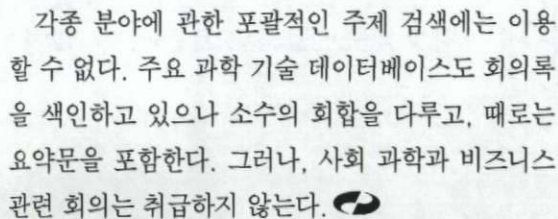 각종 분야에 관한 포괄적인 주제 검색에는 이용
할 수 없다. 주요 과학 기술 데이터베이스도 회의록
을 색인하고 있으나 소수의 회합을 다루고, 때로는
요약문을 포함한다. 그러나, 사회 과학과 비즈니스
관련 회의는 취급하지 않는다.